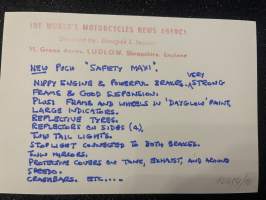 THE WORLD'S MOTORCYCLES NEWS AGENCY
LUDLOW, Shropshire, England
NEW PUCH "SAFETY MAXI".
NIPPY ENGINE & POWERFUL BRAKES. VERY STRONG
FRAME & GOOD SUSPENSION.
PLUS: FRAME AND WHEELS IN 'DAYGLOW' PAINT,
LARGE INDICATORS.
REFLECTIVE TYRES.
REFLECTORS ON SIDES (4),
TWO TAIL LIGHTS.
STOPLIGHT CONNECTED TO BOTH BRAKES.
TWIN MIRRORS.
PROTECTIVE COVERS ON TANK, EXHAUST, AND AROUND
SPEEDO.
CRASHBARS. ETC....